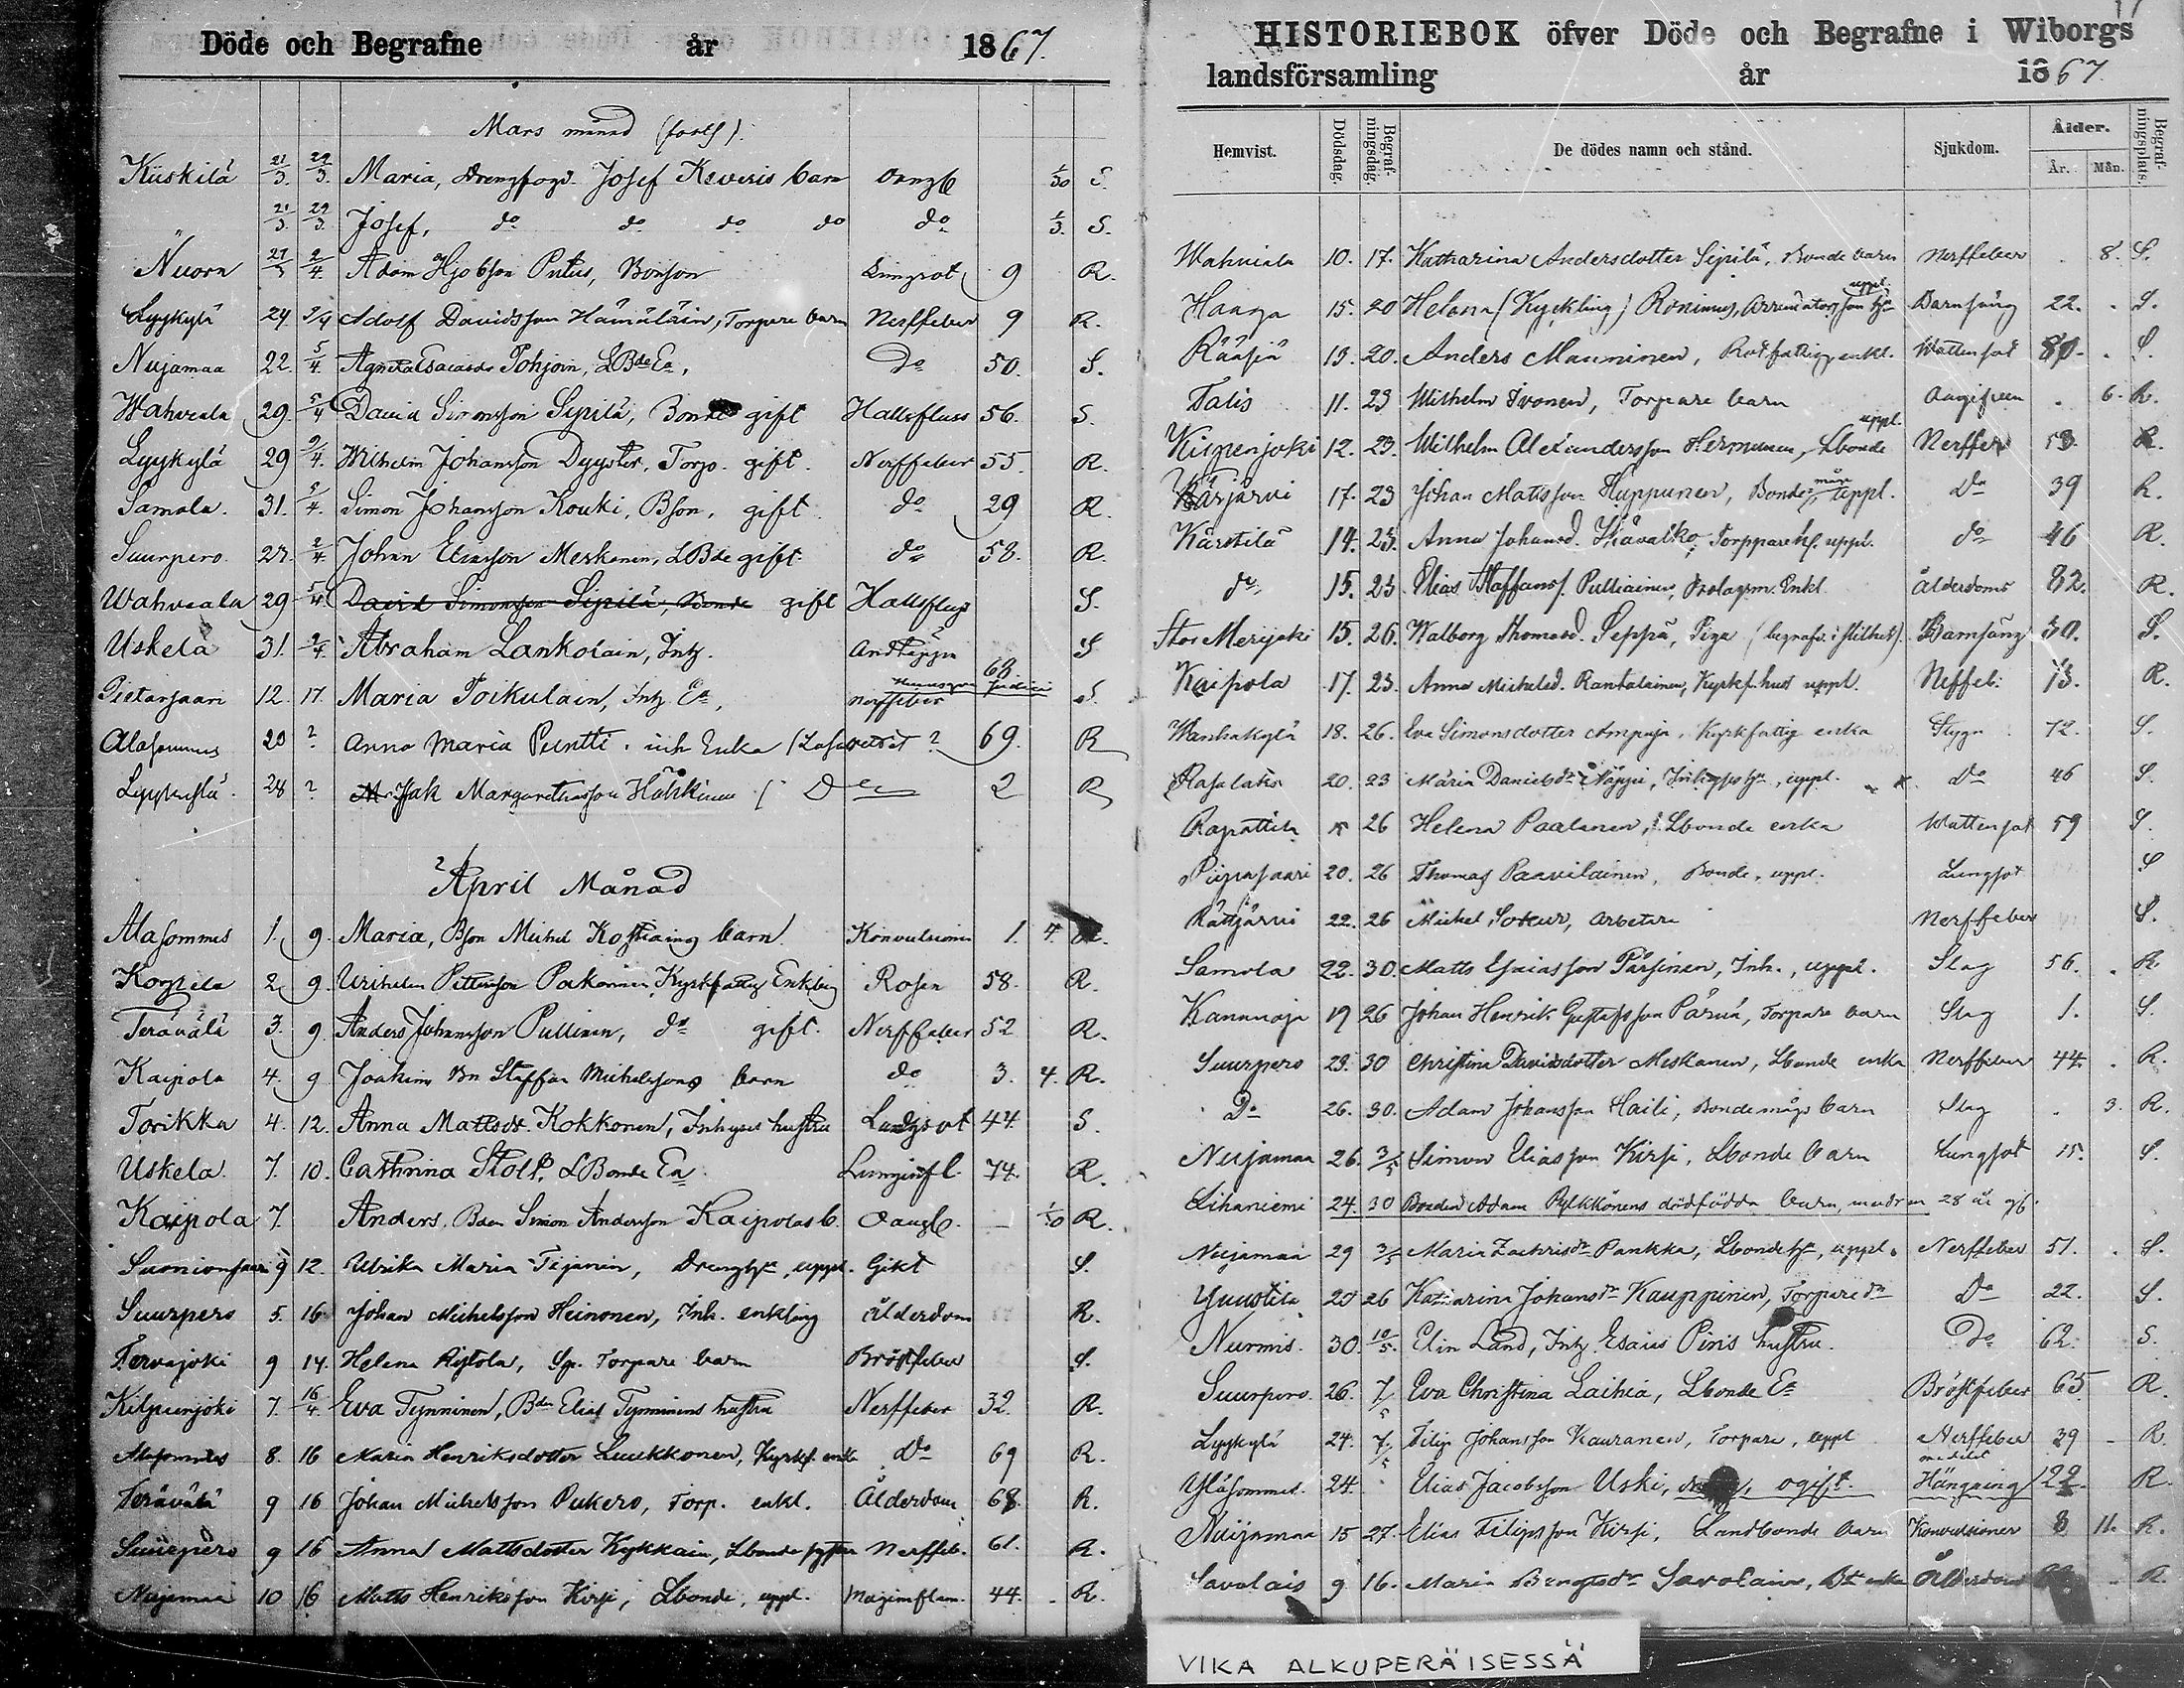 Döde och Begrafne år 1867.
Mars månad (forts).
Kiiskilä 21/3. 29/3. Maria, Drengfogd. Josef Keveris barn 1/30 S.
" 21/3. 29/3. Josef, do do do do do 1/3. S.
Nuora 27/3 2/4. Adam Hjobsson Putus, Bonson Lungsot 9 R.
Lyykylä 24 2/4 Adolf Davidsson Hämäläin, Torpare barn Nerffeber 9 R.
Nuijamaa 22. 5/4. Pohjoin, LBde Ea, Do 50. S.
Wahviala 29. 5/4 David Simonsson Sipilä, Bonde gift Hallsfluss 56. S.
Lyykylä 29 2/4. Wilhelm Johansson Dyyster, Torp. gift. Nerffeber 55. R.
Samola. 31. 5/4. Simon Johansson Kouki, Bson, gift. do 29 R.
Suurpero. 27. 2/4. Johan Eliasson Meskanen, LBde gift. do 58. R.
Wahviala 29 5/4. David Simonsson Sipilä, Bonde gift Hallsfluss S.
Uskela 31. 2/4. Abraham Lankolain, Inh. Andtäppa 68 S
Pietarsaari 12. 17. Maria Toikulain, Inh. Ea, nerffeber S
Alasommes 20 ? Anna Maria Puntti. inh Enka (Lasarettet ? 69. R
28 ? Jak Margarethasson Hölkinen ( D 2 R
April Månad
Alasommes 1. 9. Maria, Bson Michel Kostiains barn Konvulsioner 1. 4. R.
Korpela 2 9. Pettersson Pakarinen Kyrkfattig Enkling Rosen 58. R.
Terävälä 3. 9. Anders Johansson Pullinen, do gift. Nerffeber 52 R.
Kaipola 4. 9 Joakim Bn Staffan Michelssons barn do 3. 4. R.
Torikka 4. 12. Anna Mattsdr. Kokkonen, Inhyses hustru Lungsot 44 S.
Uskela. 7. 10. Cathrina Stolt. LBonde Ea Lunginfl. 74. R.
Kaipola 7. Anders, Bden Simon Andersson Kaipolas b. 1/30 R.
Suonionsaari 9 12. Ulrika Maria Tijanin, Drenghu, uppl. Gikt S.
Suurpero 5. 16 Johan Michelsson Heinonen, Inh. enkling ålderdom R.
Tervajoki 9 14. Helena Rystola, Sp. Torpare barn Bröstfeber S.
Kilpeenjoki 7. 16/4. Eva Tynninen, Bden Elias Tynninens hustru Nerffeber 32. R.
Alasommes 8. 16 Maria Henriksdotter Luukkonen, Kyrkf. enka Do 69 R.
Terävälä 9 16 Johan Michelsson Pukero, Torp. enkl. Ålderdom 68. R.
Suurpero 9 16 Anna Mattsdotter Kykkäin, Lbonde Nerffeb. 61. R.
Nuijamaa 10 16 Matts Henriksson Kirsi, Lbonde, uppl. Maginflam. 44. R.
HISTORIEBOK öfver Döde och Begrafne i Wiborgs
landsförsamling år 1867.
Hemvist. Dödsdag. Begrafningsdag. De dödes namn och stånd. Sjukdom. Ålder. År. Mån. Begrafningsplats.
Wahviala 10. 17. Katharina Andersdotter Sipilä, Bonde barn Nerffeber 8. S.
Haaga 15. 20 Helena (Kyckling) Ronimus, Arrendators son hu uppl. Barnsäng 22. S.
Rääsjä 13. 20. Anders Mauninen, Rotfattig enkl. Wattensot 80. S.
Talis 11. 23 Wilhelm Ivonen, Torpare barn 6. R.
Kilpeenjoki 12. 23. Wilhelm Alexandersson Hermunen, Lbonde uppl. Nerffeb 53. R.
Kärjärvi 17. 23 Johan Matsson Huppunen, Bonde måg uppl. Do 39 R.
Kärstilä 14. 23. Anna Johansd. Torppare h. uppl. do 46 R.
do 15. 23. Elias Staffanss. Pulliainen, Enkl. ålderdoms 82. R.
Stor Merijoki 15. 26. Walborg Thomasd. Seppä, Piga (begrafv. i stillhet). Barnsäng 30. S.
Kaipola 17. 23. Anna Michelsd. Rantalainen, Kyrkf. hust uppl. Nerffeb. 73. R.
Wanhakylä 18. 26. Eva Simonsdotter Ampuja, Kyrkfattig enka Stygn 72. S.
20. 23 Maria Danielsdr Näppi, Inhyses hu, uppl. do 46 S.
Rapattila 26 Helena Paalanen, Lbonde enka Wattensot 59 S.
Piispasaari 20. 26 Thomas Paavilainen, Bonde, uppl. Lungsot S
Kättjärvi 22. 26 Michel Sokur, arbetare Nerffeber S.
Samola 22. 30. Matts Esaiasson Pärsinen, Inh., uppl. Slag 56. R
Kananoja 19 26 Johan Henrik Gustafsson Pärnä, Torpare barn Slag 1. S.
Suurpero 23. 30 Christina Davidsdotter Meskanen, Lbonde enka Nerffeber 44. R.
Do 26. 30. Adam Johansson Haili, Bondemågs barn Slag 3. R.
Nuijamaa 26. 3/5 Simon Eliasson Kirsi, Lbonde barn Lungsot 15. S.
Lihaniemi 24. 30 Bonden Adam Pylkkönens dödfödda barn, modren 28 år gl.
Nuijamaa 29 3/5 Maria Zachrisdr Pankka, Lbonde hu, uppl. Nerffeber 51. S.
Yuustila 20 26 Katharina Johansdr Kauppinen, Torpare dr Do 22. S.
Nurmis. 30. 10/5. Elin Land, Inh. Esaias Piris hustru. Do 62. S.
Suurpero. 26. 7/5 Eva Christina Laihia, Lbonde Ea Bröstfeber 65 R.
Lyykylä 24. 7/5 Filip Johansson Kauranen, Torpare, uppl Nerffeber 39 R.
Yläsommes. 24. Elias Jacobsson Uski, ogift. Hängning 22 R.
Nuijamaa 15 27. Elias Filipsson Kirsi, Landbonde barn Konvulsioner 8 11. R.
Savolais 9 16. Maria Bengtsdr Savolain, Bd enka Ålderdom R.
VIKA ALKUPERÄISESSÄ